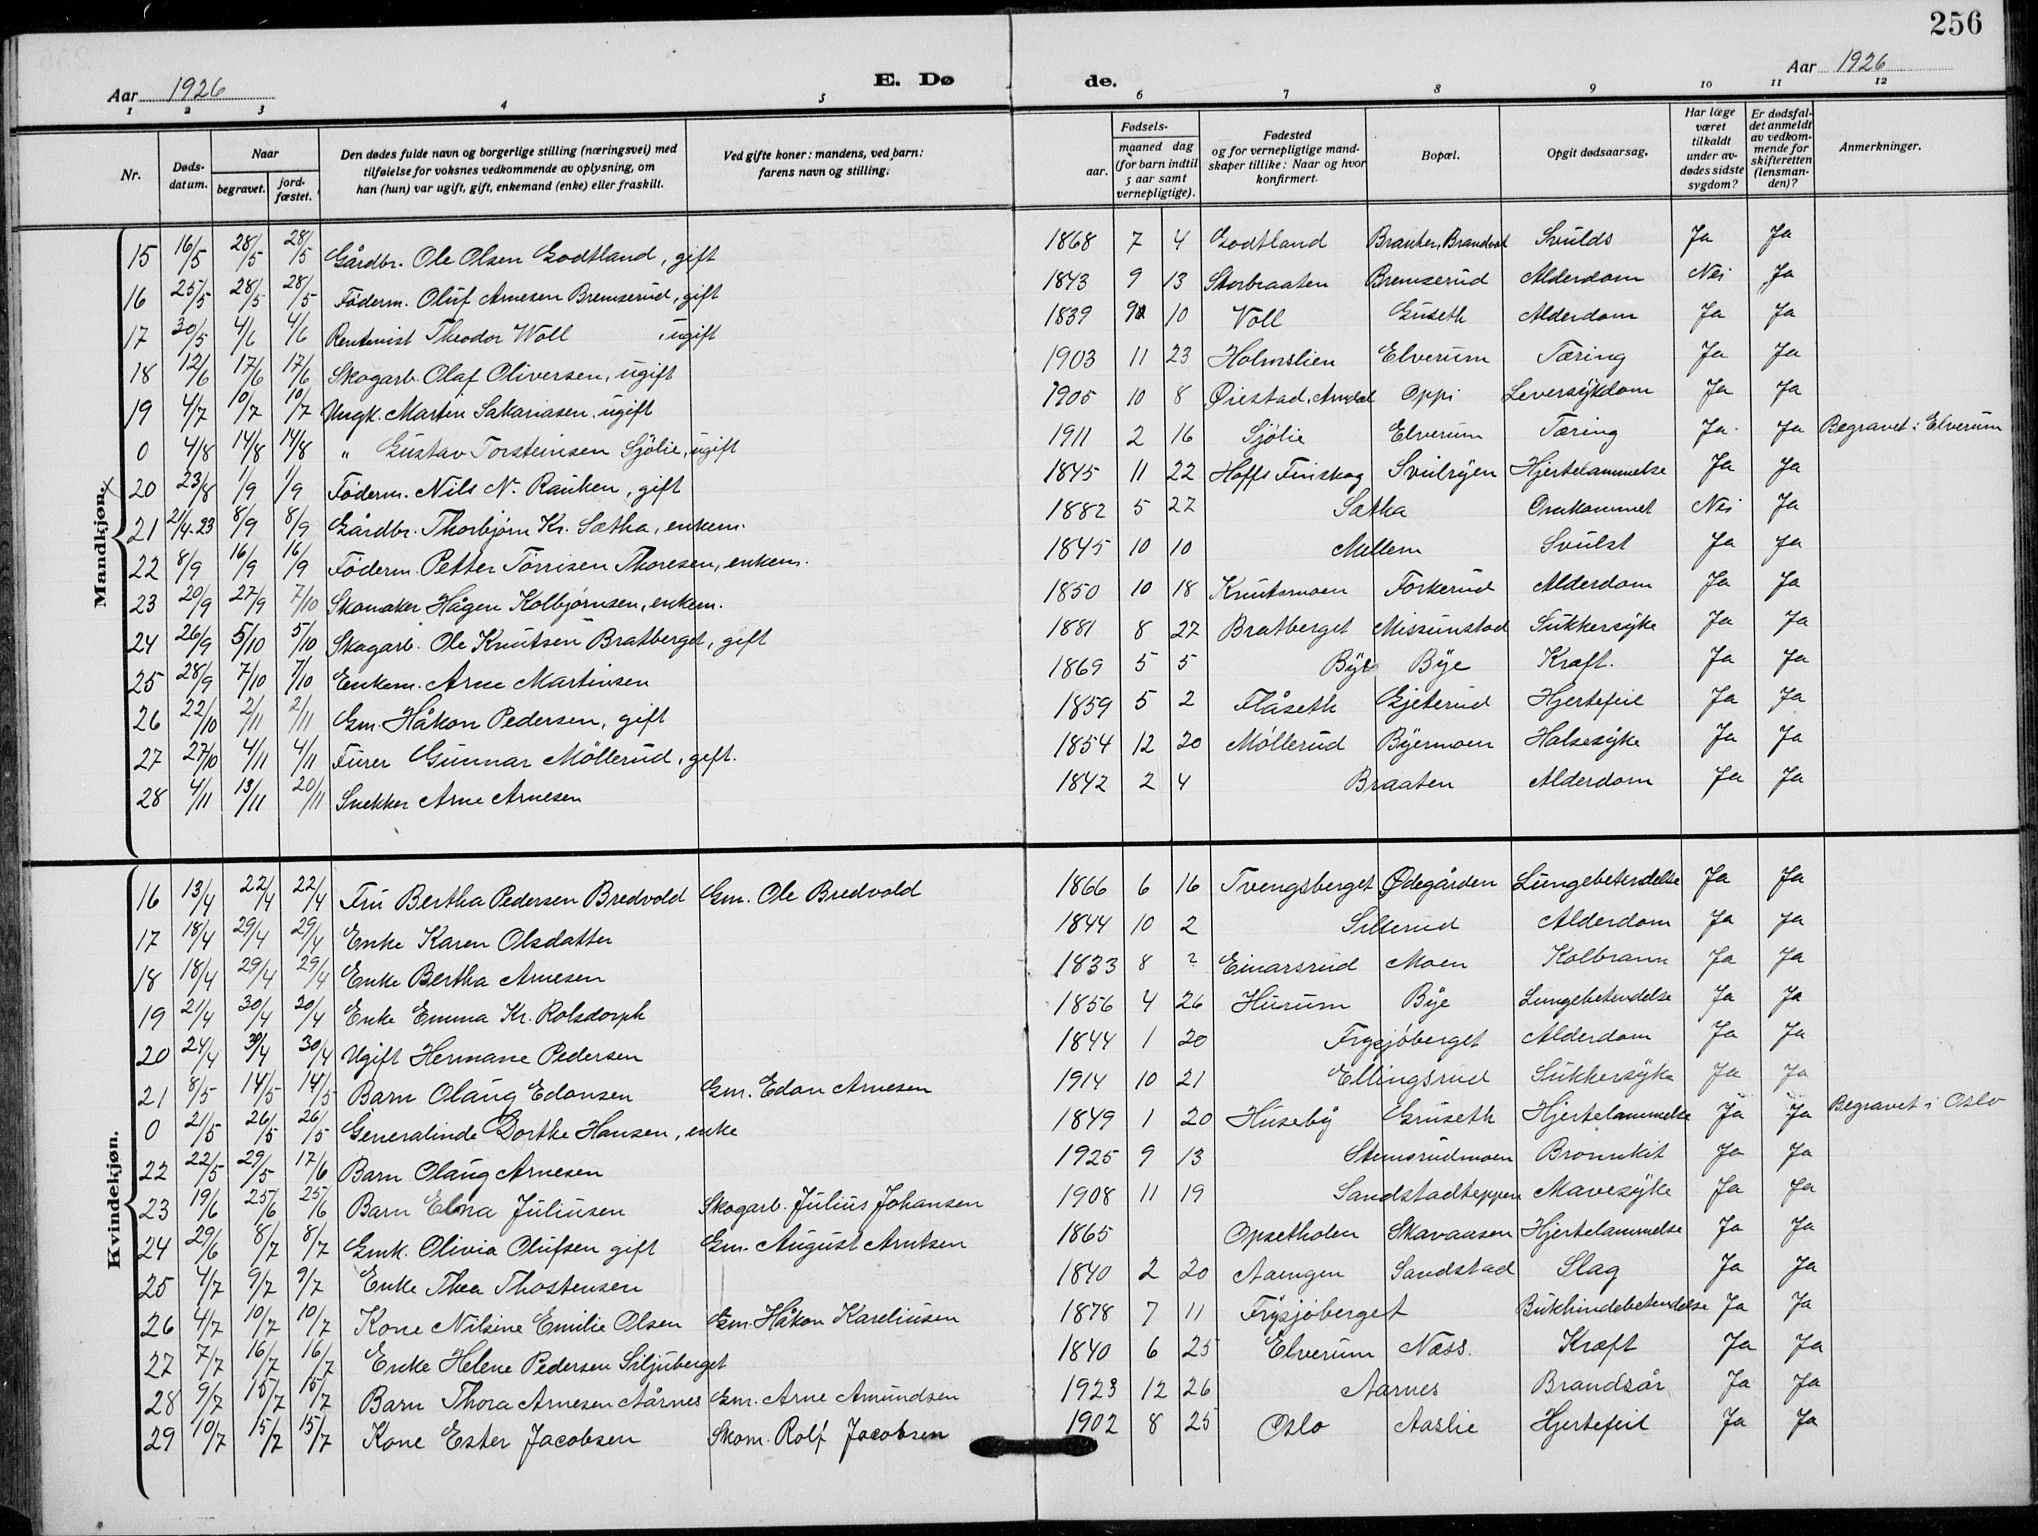 256
Aar 1926
E. Dø de.
Aar 1926
1 2 3 4 5 6 7 8 9 10 11 12
Nr.
Døds-datum.
Naar
begravet.
jord-fæstet.
Den dødes fulde navn og borgerlige stilling (næringsvei) med tilføielse for voksnes vedkommende av oplysning, om han (hun) var ugift, gift, enkemand (enke) eller fraskilt.
Ved gifte koner: mandens, ved barn: farens navn og stilling.
Fødsels-
aar.
maaned dag (for barn indtil 5 aar samt vernepligtige).
Fødested og for vernepligtige mandskaper tillike: Naar og hvor konfirmert.
Bopæl.
Opgit dødsaarsag.
Har læge været tilkaldt under avdødes sidste sygdom?
Er dødsfaldet anmeldt av vedkommende for skifteretten (lensmanden)?
Anmerkninger.
Mandkjøn.
15 16/5 28/5 28/5 Gårdbr. Ole Olsen Godtland, gift 1868 7 4 Godtland Svulds Ja Ja
16 25/5 28/5 28/5 Föderm. Oluf Arnesen Bremserud, gift 1843 9 13 Storbraaten Bremserud Alderdom Nei Ja
17 30/5 4/6 4/6 Rentenist Theodor Woll, ugift 1839 9 10 Voll Guseth Alderdom Ja Ja
18 12/6 17/6 17/6 Skogarb. Olaf Oliversen, ugift 1903 11 23 Holmslien Elverum Tæring Ja Ja
19 4/7 10/7 10/7 Ungk. Martin Sakariasen, ugift 1905 10 8 Øiestad, Arndal Oppi Leversykdom Ja Ja
0 4/8 14/8 14/8 " Gustav Torsteinsen Sjölie, ugift 1911 2 16 Sjölie Elverum Tæring Ja Ja Begravet i Elverum
20 23/8 1/9 1/9 Föderm. Nils N. Rauken, gift 1845 11 22 Hoffs Finskog Svulryen Hjertelammelse Ja Ja
21 21/4-23 8/9 8/9 Gårdbr. Thorbjørn Kr. Sætha, enkem. 1882 5 27 Sætha Omkommet Nei Ja
22 8/9 16/9 16/9 Föderm. Petter Törrisen Thoresen, enkem. 1845 10 10 Mellem Svulst Ja Ja
23 20/9 27/9 7/10 Skomaker Hågen Kolbjørnsen, enkem. 1850 10 18 Knutsmoen Forkerud Alderdom Ja Ja
24 26/9 5/10 5/10 Skogarb. Ole Knutsen Bratberget, gift 1881 8 27 Bratberget Missunstad Sukkersyke Ja Ja
25 28/9 7/10 7/10 Enkem. Arne Martinsen 1869 5 5 Bye Bye Kræft. Ja Ja
26 22/10 2/11 2/11 Gm. Håkon Pedersen, gift 1859 5 2 Flåseth Gjeterud Hjertefeil Ja Ja
27 27/10 4/11 4/11 Furer Gunnar Möllerud, gift. 1854 12 20 Möllerud Byermoen Halsesyke Ja Ja
28 4/11 13/11 20/11 Snekker Arne Arnesen 1842 2 4 Braaten Alderdom Ja Ja
Kvindekjøn.
16 13/4 22/4 22/4 Fru Bertha Pedersen Bredvold Gm. Ole Bredvold 1866 6 16 Tvengsberget Ødegården Lungebetendelse Ja Ja
17 18/4 29/4 29/4 Enke Karen Olsdatter 1844 10 2 Silterud Alderdom Ja Ja
18 18/4 29/4 29/4 Enke Bertha Arnesen 1833 8 ? Einarsrud Moen Kolbrann Ja Ja
19 21/4 30/4 30/4 Enke Emma Kr. Rolsdorph 1856 4 26 Hurum Bye Lungebetendelse Ja Ja
20 24/4 30/4 30/4 Ugift Hermane Pedersen 1844 1 20 Frysjöberget Alderdom Ja Ja
21 8/5 14/5 14/5 Barn Olaug Edansen Gm. Edan Arnesen 1914 10 21 Ellingsrud Sukkersyke Ja Ja
0 21/5 26/5 26/5 Generalinde Dorthe Hansen, enke 1849 1 20 Huseby Gruseth Hjertelammelse Ja Ja Begravet i Oslo
22 22/5 29/5 17/6 Barn Olaug Arnesen 1925 9 13 Stemsrudmoen Bronnkit Ja Ja
23 19/6 25/6 25/6 Barn Elna Juliusen Skogarb. Julius Johansen 1908 11 19 Sandstadteppen Mavesyke Ja Ja
24 29/6 8/7 8/7 Gmk. Olivia Olufsen gift Gm. August Arntsen 1865 Opsetholen Skavaasen Hjertelammelse Ja Ja
25 4/7 9/7 9/7 Enke Thea Thostensen 1840 2 20 Aaengen Sandstad Slag Ja Ja
26 4/7 10/7 10/7 Kone Nilsine Emilie Olsen Gm. Håkon Kareliusen 1878 7 11 Frysjöberget Bukhindebetendelse Ja Ja
27 7/7 16/7 16/7 Enke Helene Pedersen Siljuberget 1840 6 25 Elverum Næss. Kræft Ja Ja
28 9/7 15/7 15/7 Barn Thora Arnesen Aårnes Gm. Arne Amundsen 1923 12 26 Aarnes Brandsår Ja Ja
29 10/7 15/7 15/7 Kone Ester Jacobsen Skom. Rolf Jacobsen 1902 8 25 Oslo Aaslie Hjertefeil Ja Ja